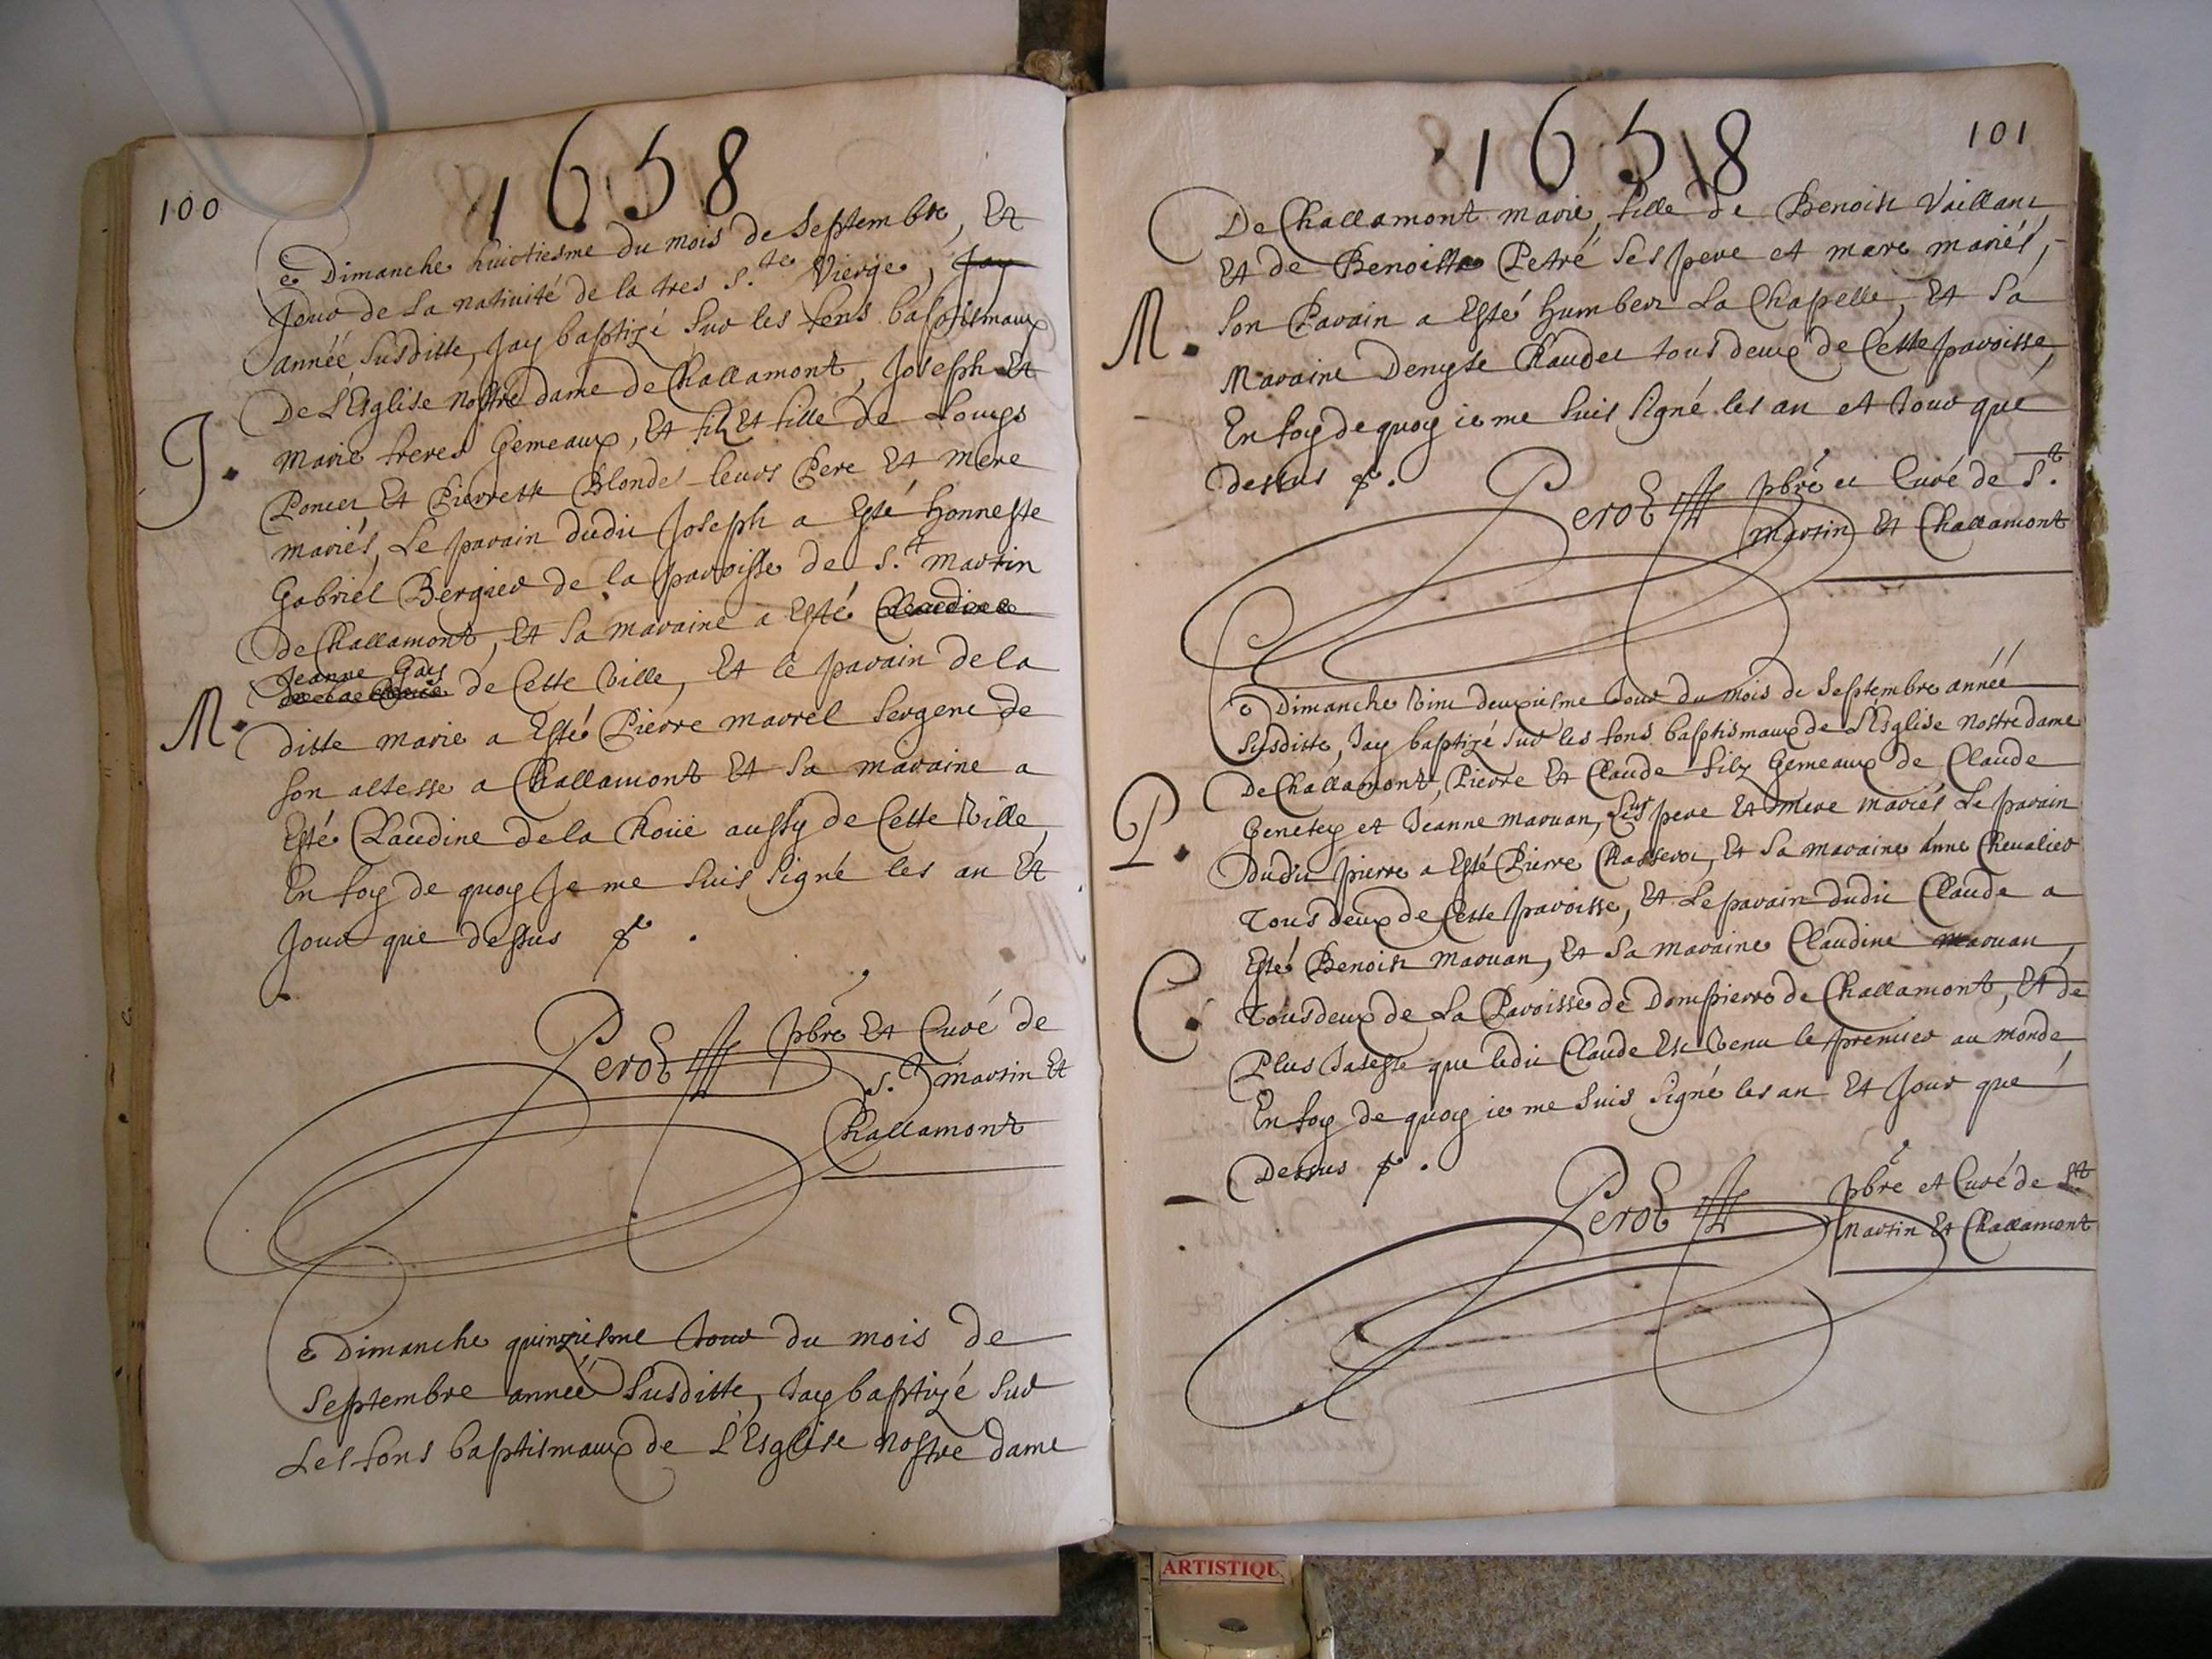 1658
100
Le Dimanche huictiesme du mois de Septembre, Et
Jour de La nativité de la tres S.te Vierge, Jay
année susditte, Jay baptizé sur les fons baptismaux
De L'Esglise nostre dame de Challamont, Joseph Et
J.
Marie freres Gemeaux, Et filz Et fille de Louys
Poncet Et Pierrette Blonde leurs Pere Et mere
mariés, Le parain dudit Joseph a Esté honneste
Gabriel Bergier de la parroisse de S.t martin
de Challamont, Et sa maraine a Esté Claudine
Jeanne Gays
de la Roüe de Cette Ville, Et le parain de la
M.
ditte marie a Esté Pierre marrel sergent de
son altesse a Challamont Et sa maraine a
Esté Claudine de la Roüe aussy de Cette Ville,
En foy de quoy Je me suis signé les an Et
Jour que dessus
Perot pbre Et Curé de
S.t martin Et
Challamont
Le Dimanche quinziesme Jour du mois de
Septembre année susditte, Jay baptizé sur
Les fons baptismaux de L'Esglise nostre dame
1658
101
De Challamont marie, fille de Benoist Vaillant
Et de Benoiste Petré ses pere et mere mariés,
M.
son Parain a Esté humbert La Chapelle, Et sa
Maraine Denyse Chaudet tous deux de Cette paroisse,
En foy de quoy ie me suis signé les an et Jour que
dessus
Perot pbre et Curé de S.t
martin Et Challamont
Le Dimanche Vint deuxiesme Jour du mois de Septembre année
susditte, Jay baptizé sur les fons baptismaux de L'Esglise nostre dame
De Challamont, Pierre Et Claude filz Gemeaux de Claude
P.
Genetey et Jeanne maruan, Leurs pere Et mere mariés Le parain
Dudit pierre a Esté Pierre Chasserot, Et sa maraine Anne Chevalier
Tous deux de Cette paroisse, Et Le parain dudit Claude a
Esté Benoist Maruan, Et sa maraine Claudine maruan,
C.
Tous deux de La Paroisse de Dompierre de Challamont, Et de
Plus Jateste que ledit Claude Est Venu le premier au monde,
En foy de quoy ie me suis signé les an Et Jour que
Dessus
Perot pbre et Curé de S.t
Martin Et Challamont
ARTISTIQU